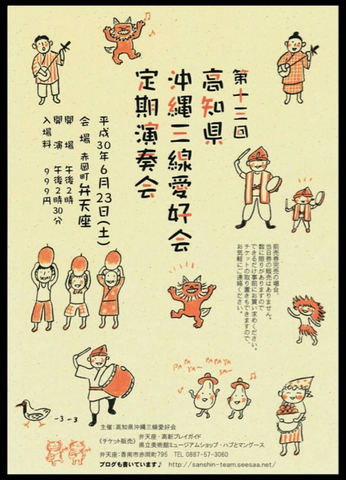 第十三回
高知県
沖縄三線愛好会
定期演奏会
平成30年6月23日(土)
会場 赤岡町弁天座
開場 午後2時
開演 午後2時30分
入場料 999円
前売券完売の場合、
当日券の販売はありません。
数に限りがありますので
できるだけ事前にお買い求めください。
チケットの取り置きもできますので、
お気軽にご連絡ください。
PA PA YA
主催：高知県沖縄三線愛好会
《チケット販売》 弁天座・高新プレイガイド
県立美術館ミュージアムショップ・ハブとマングース
弁天座：香南市赤岡町795 TEL 0887-57-3060
ブログも書いています♪ http://sanshin-team.seesaa.net/